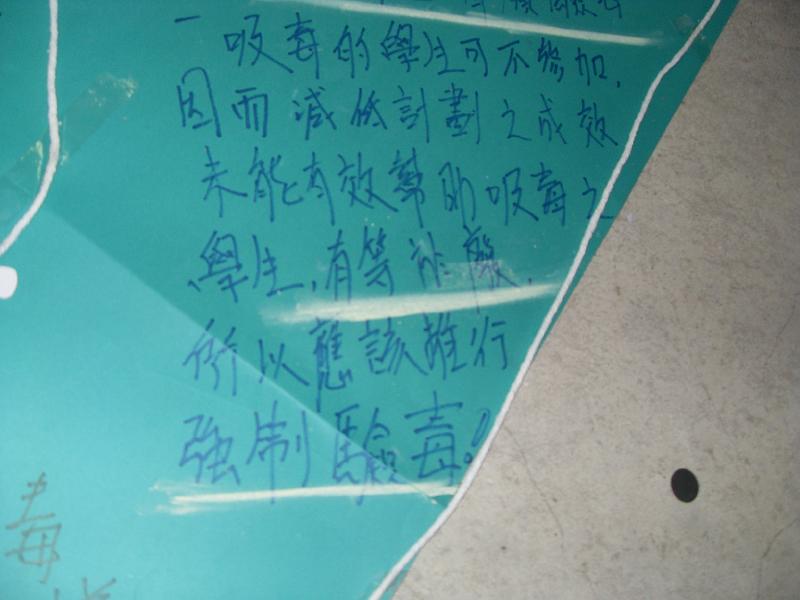 吸毒的學生可不參加,
因而減低計劃之成效
未能有效幫助吸毒之
學生,有等於廢,
所以應該推行
強制驗毒!
毒